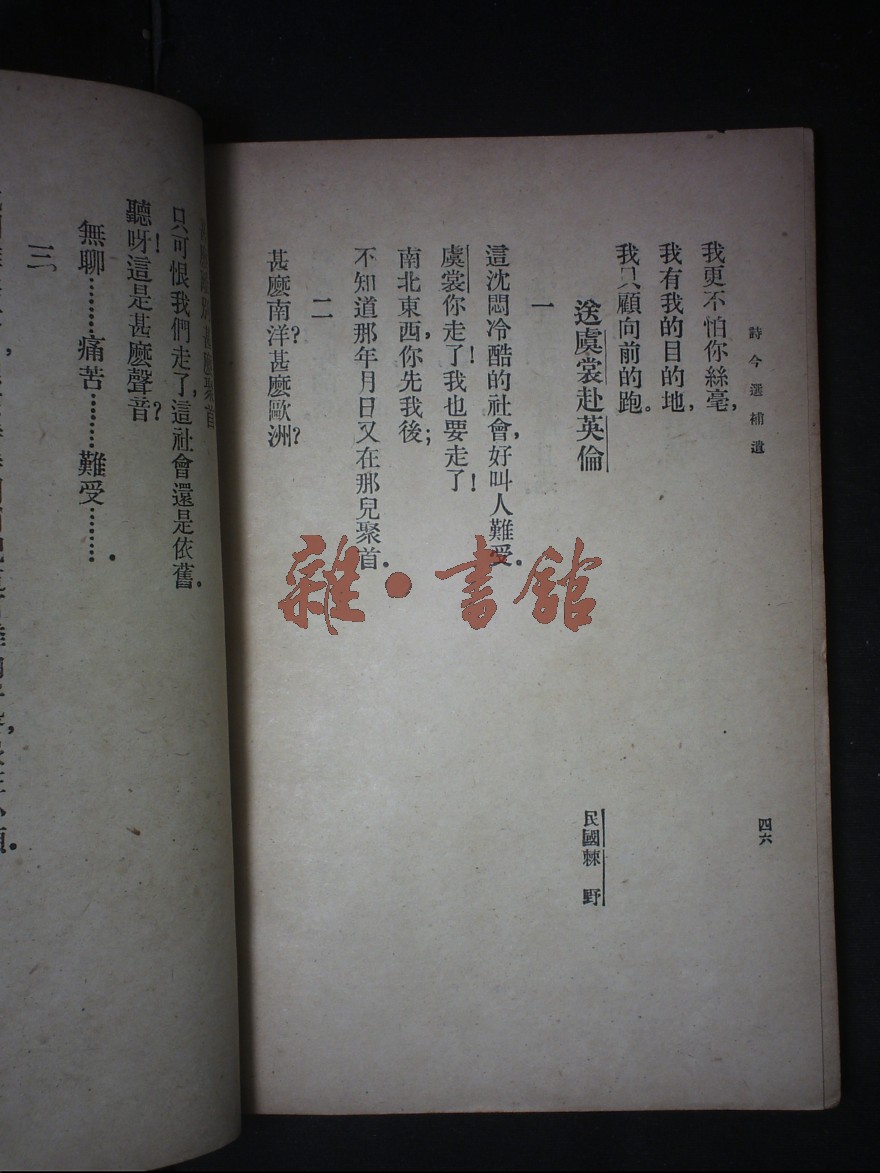 詩今選補遺
四六
我更不怕你絲毫，
我有我的目的地，
我只顧向前的跑。
送虞裳赴英倫
民國棘野
一
這沈悶冷酷的社會，好叫人難受．
虞裳你走了！我也要走了！
南北東西，你先我後；
不知道那年月日又在那兒聚首．
二
甚麽南洋？甚麽歐洲？
甚麽聚首
只可恨我們走了，這社會還是依舊．
聽呀！這是甚麽聲音？
無聊………痛苦………難受………．
三
雜·書館